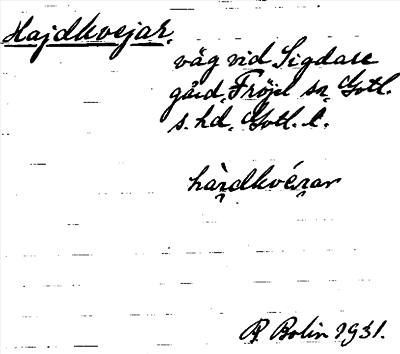 Hajdkvejar.
väg vid Sigdare
gård, Fröjel sn, Gotl.
s. hd, Gotl. l.
hàrdkvérar
R Bolin 1931.